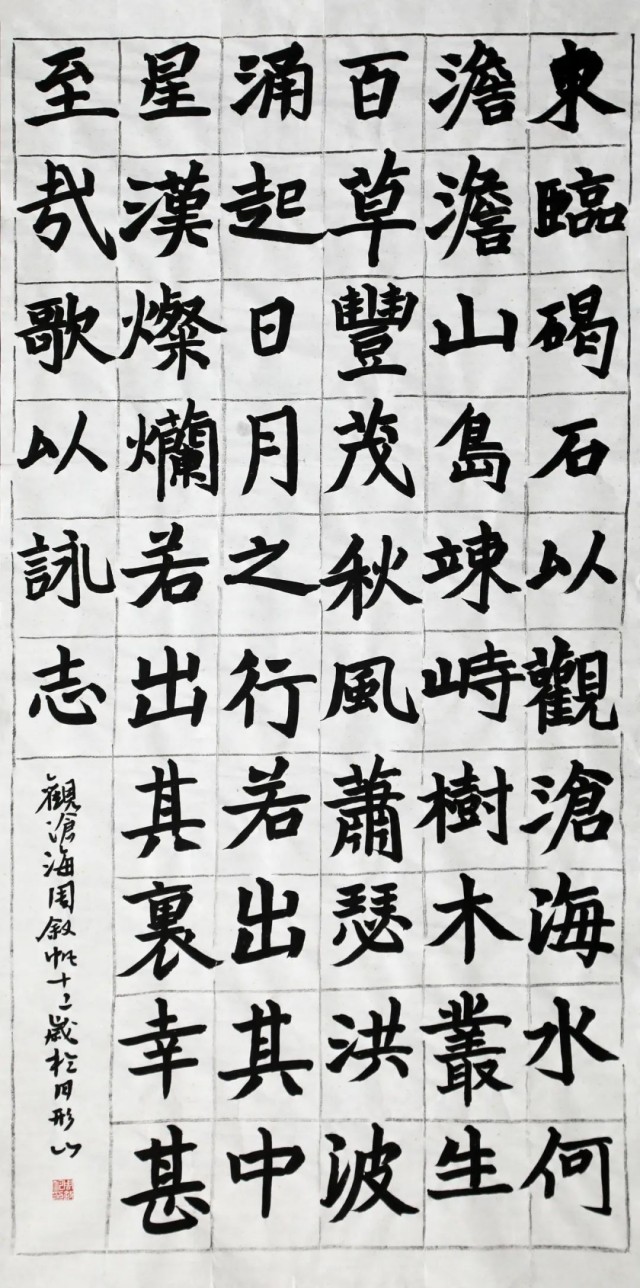 東臨碣石以觀滄海水何
澹澹山島竦峙樹木叢生
百草豐茂秋風蕭瑟洪波
涌起日月之行若出其中
星漢燦爛若出其裏幸甚
至哉歌以詠志
觀滄海周叙帆十二歲於月形山